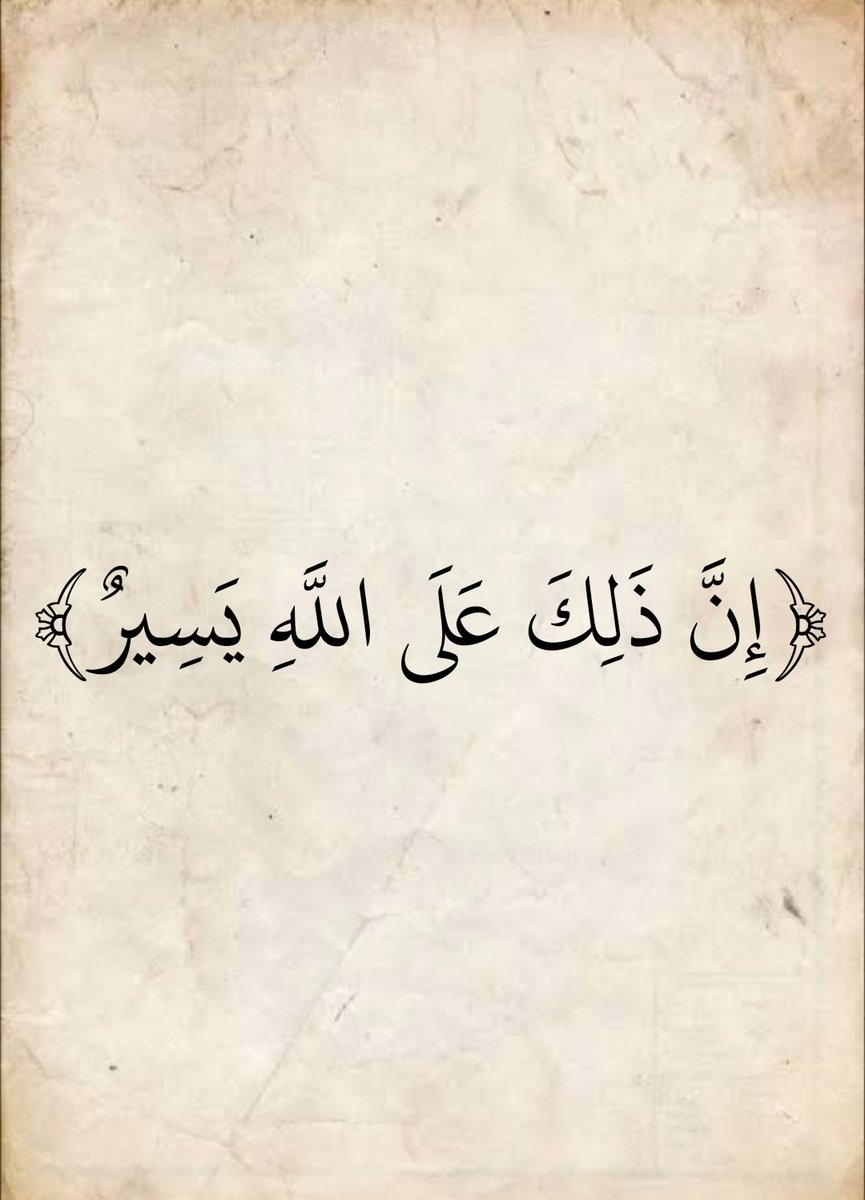 ﴿إِنَّ ذَلِكَ عَلَى اللَّهِ يَسِيرٌ﴾